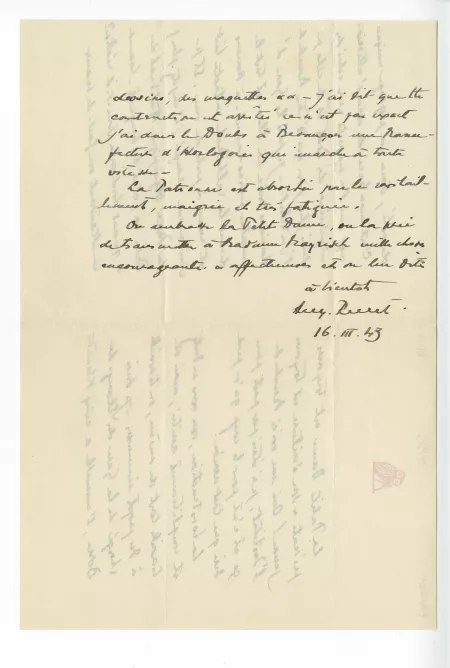 dessins, des maquettes &a. – j'ai dit que tte
construction est arrêtée ce n'est pas exact
j'ai dans le Doubs à Besançon une Manu-
facture d'Horlogerie qui marche à toute
vitesse –
La Patronne est absorbée par le
maigrie et très fatiguée.
On embrasse la Petit Dame, on la prie
de transmettre à Madame Mayrisch mille choses
encourageantes & affectueuses et on leur dit
à bientôt
Aug. Perret.
16. III. 43